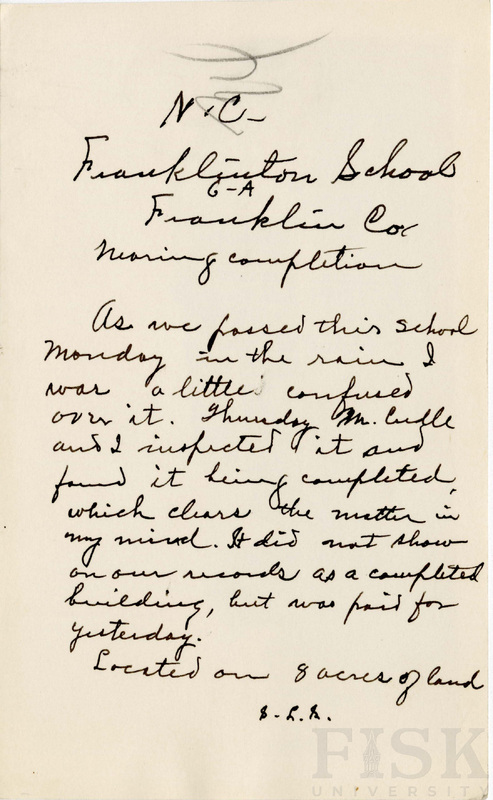 N.C-
Franklinton School
6-A
Franklin Co.
Nearing completion
As we passed this school
Monday in the rain I
was a little confused
over it. Thursday
and I inspected it and
found it being completed,
which clears the matter in
my mind. It did not show
on our records as a completed
building, but was paid for
yesterday.
Located on 8 acres of land
S.L.S.
FISK
UNIVERSITY